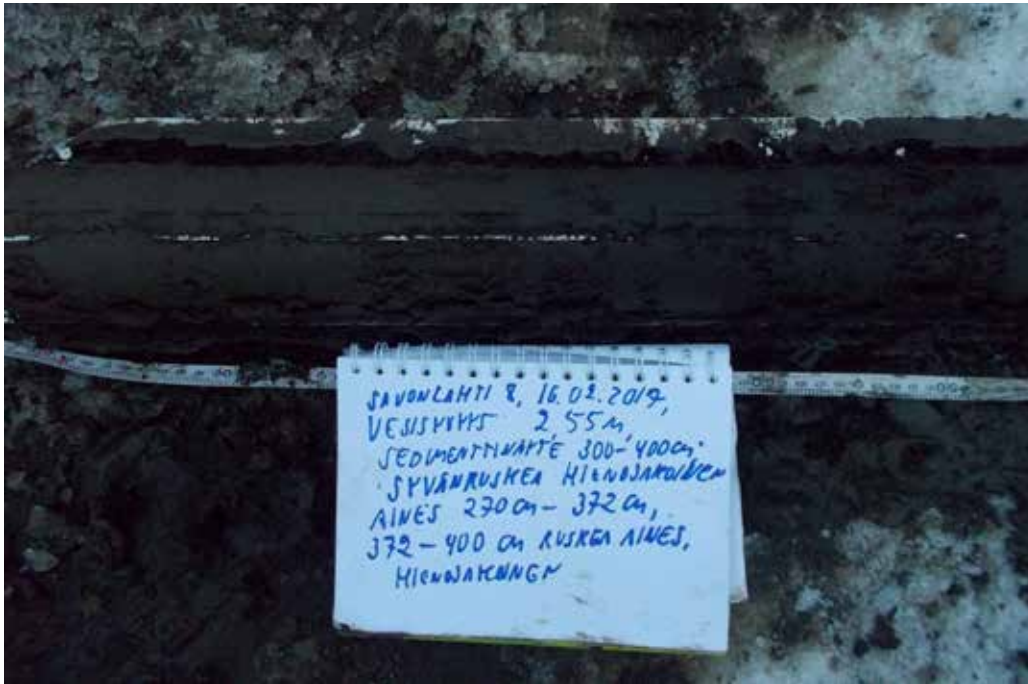 SAVONLAHTI 8, 16.02.2017,
VESISYVYYS 2,55 m,
SEDIMENTTINÄYTE 300-400 cm.
SYVÄNRUSKEA HIENOJAKOINEN
AINES 270 cm - 372 cm,
372 - 400 cm RUSKEA AINES,
HIENOJAKOINEN